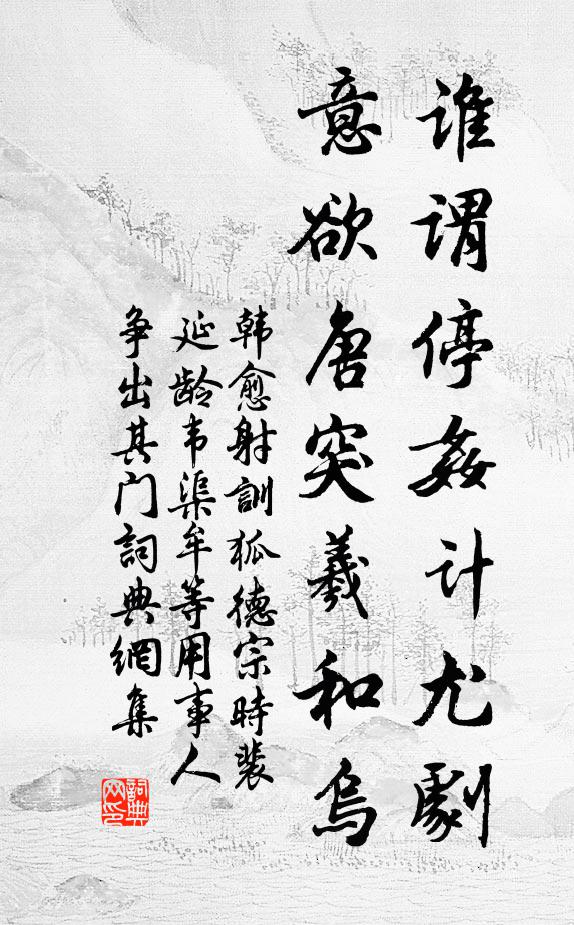 谁谓停姦计尤劇
意欲唐突羲和烏
韩愈射訓狐德宗時裴
延龄韦渠牟等用事人
争出其门詞典網集
詞典网印